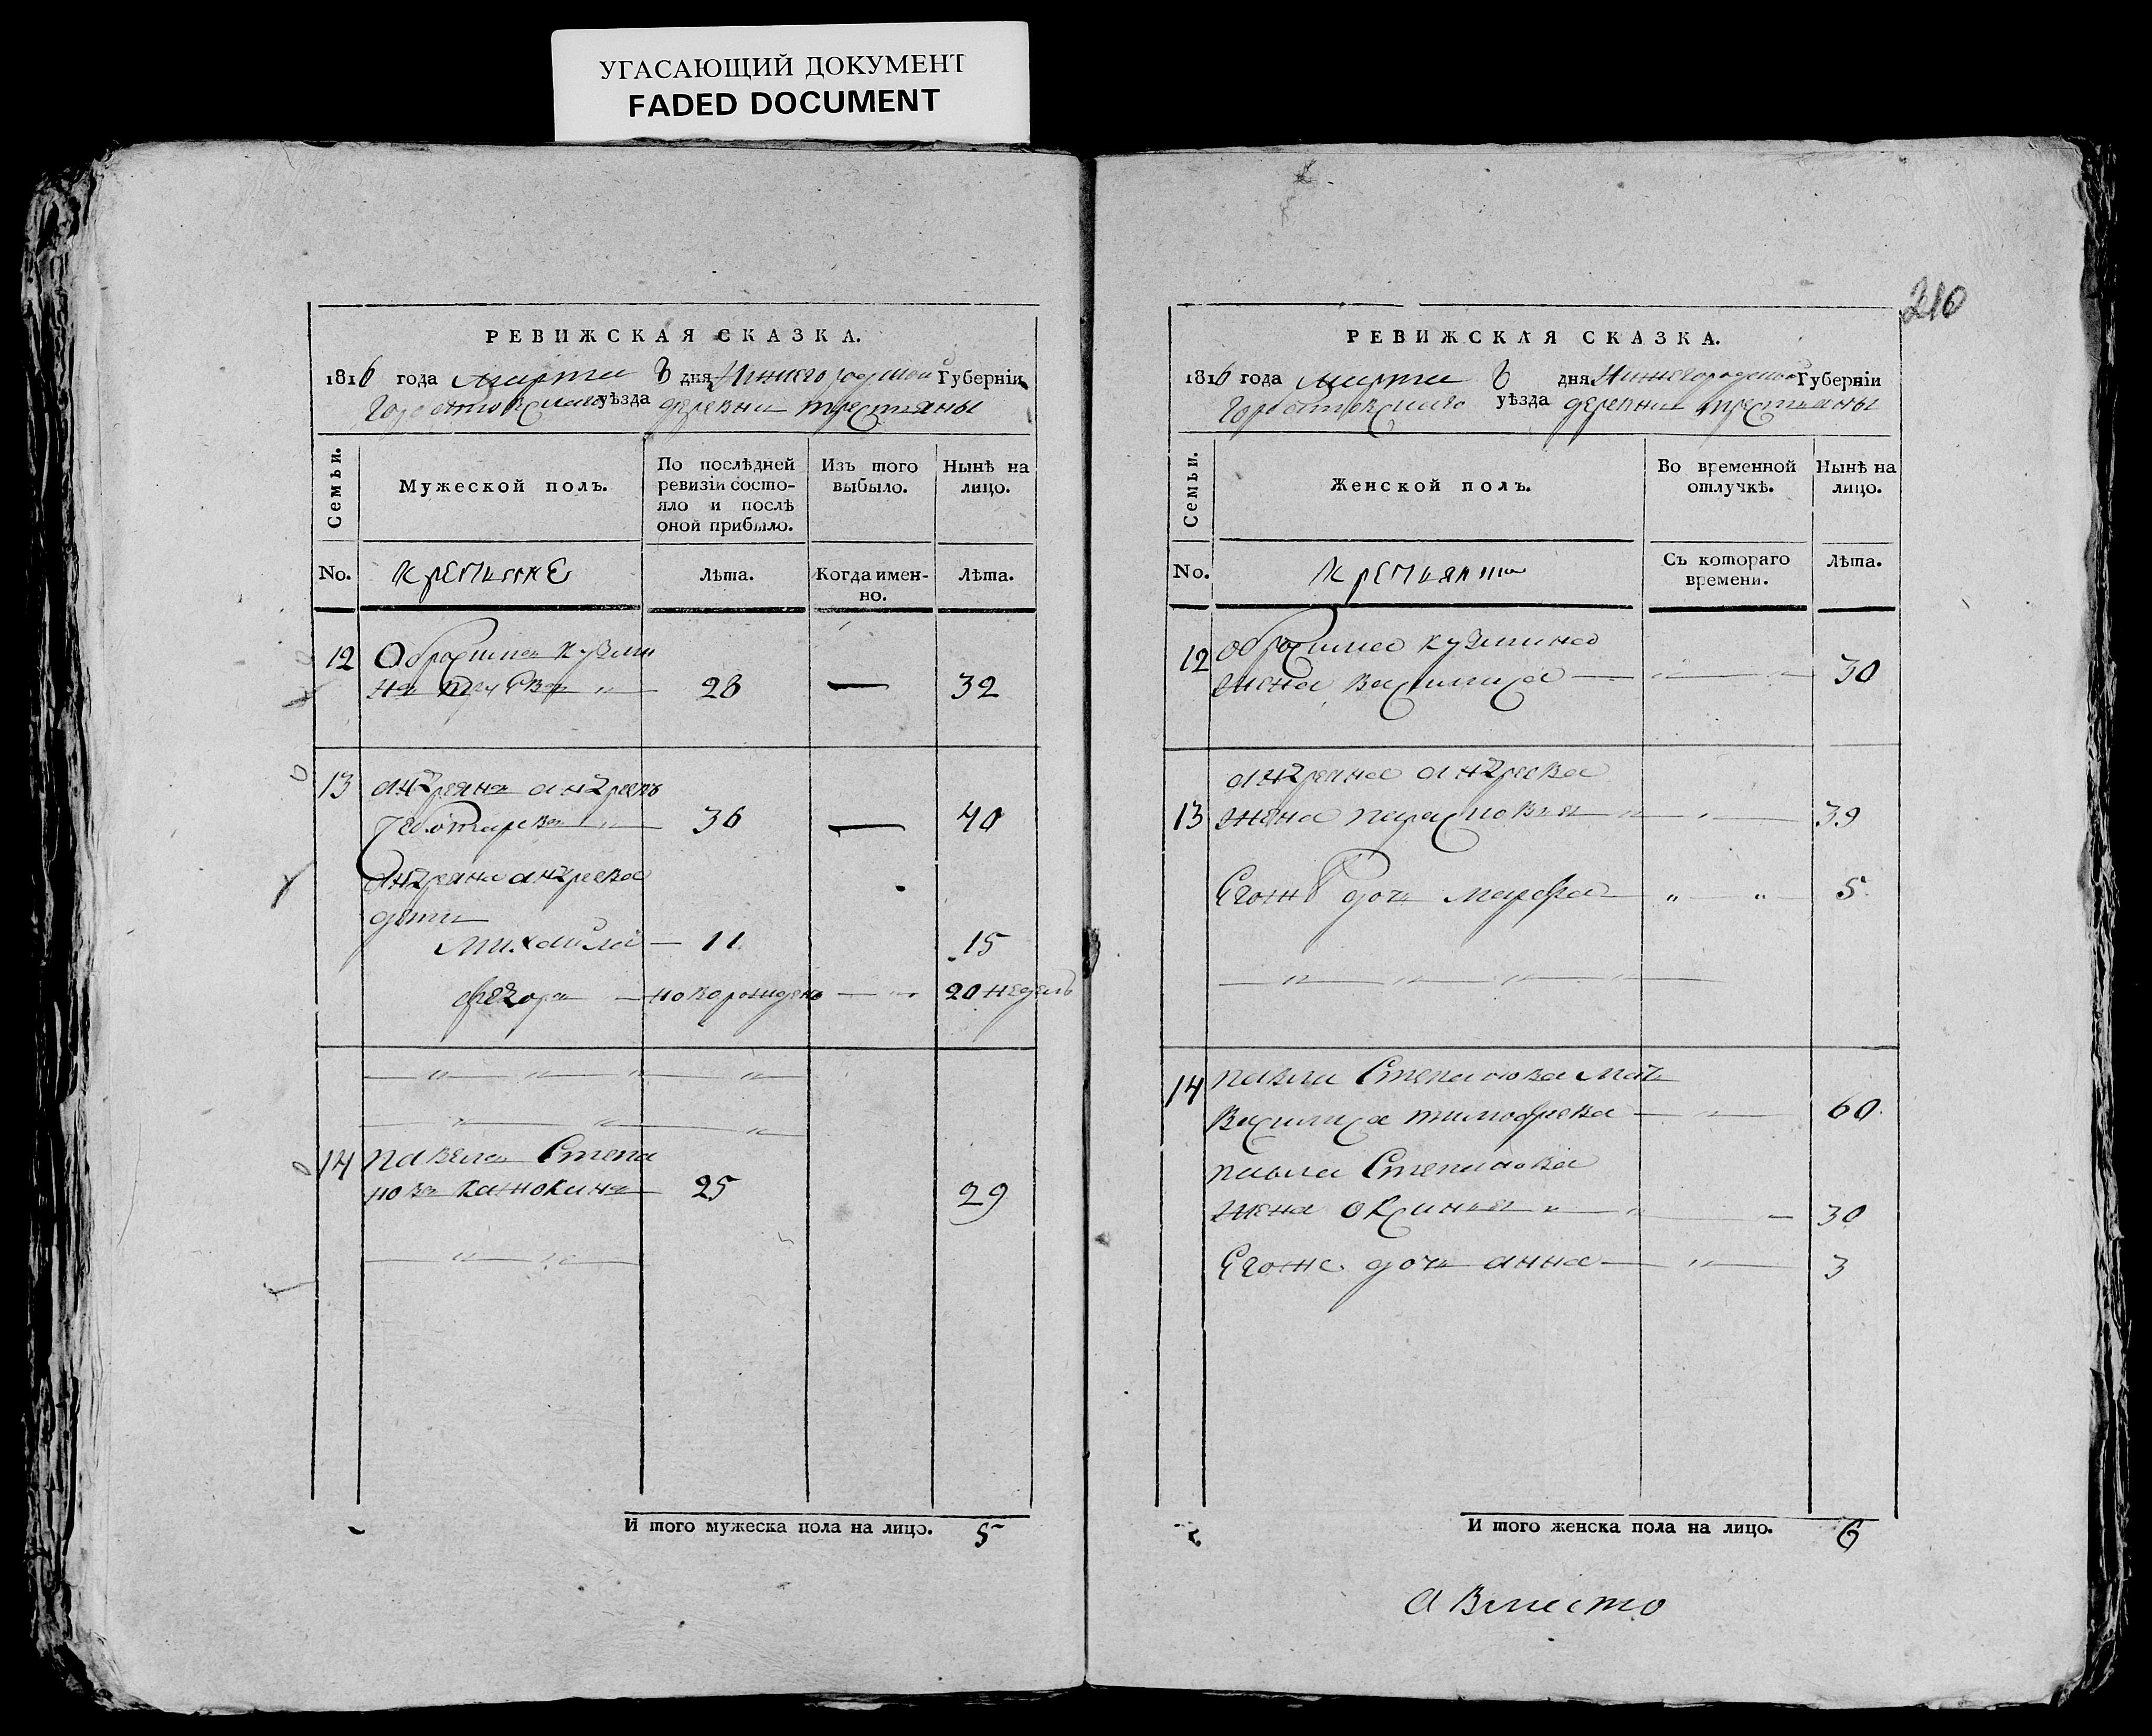 УГАСАЮЩИЙ ДОКУМЕНТ
FADED DOCUMENT
РЕВИЖСКАЯ СКАЗКА.
1816 года марта 8 дня Нижегородской Губерніи
уѣзда деревни
Семьи.
Мужеской полъ.
По послѣдней ревизіи состо-
яло и послѣ
оной прибыло.
Изъ того
выбыло.
Нынѣ на
лицо.
No.
Лѣта.
Когда имен-
но.
Лѣта.
12
Кузми
28 — 32
13 андреянъ андреевъ
36 — 40
Андреяна андреева
дети
Михайла — 11 15
федоръ — новорожденъ — 20 недель
14 павелъ Степа
новъ 25 29
И того мужеска пола на лицо. 5
210
РЕВИЖСКАЯ СКАЗКА.
1816 года марта 8 дня Нижегородской Губерніи
уѣзда деревни
Семьи.
Женской полъ.
Во временной
отлучкѣ.
Нынѣ на
лицо.
No.
Съ котораго
времени.
Лѣта.
12 кузмина
жена василиса — 30
андреяна андреева
13 жена парасковья — 39
Егожъ дочь марфа — 5
14 павла Степанова мать
Василиса тимофеева — 60
павла Степанова
жена оксинья — 30
Егоже дочь анна — 3
И того женска пола на лицо. 6
а вместо